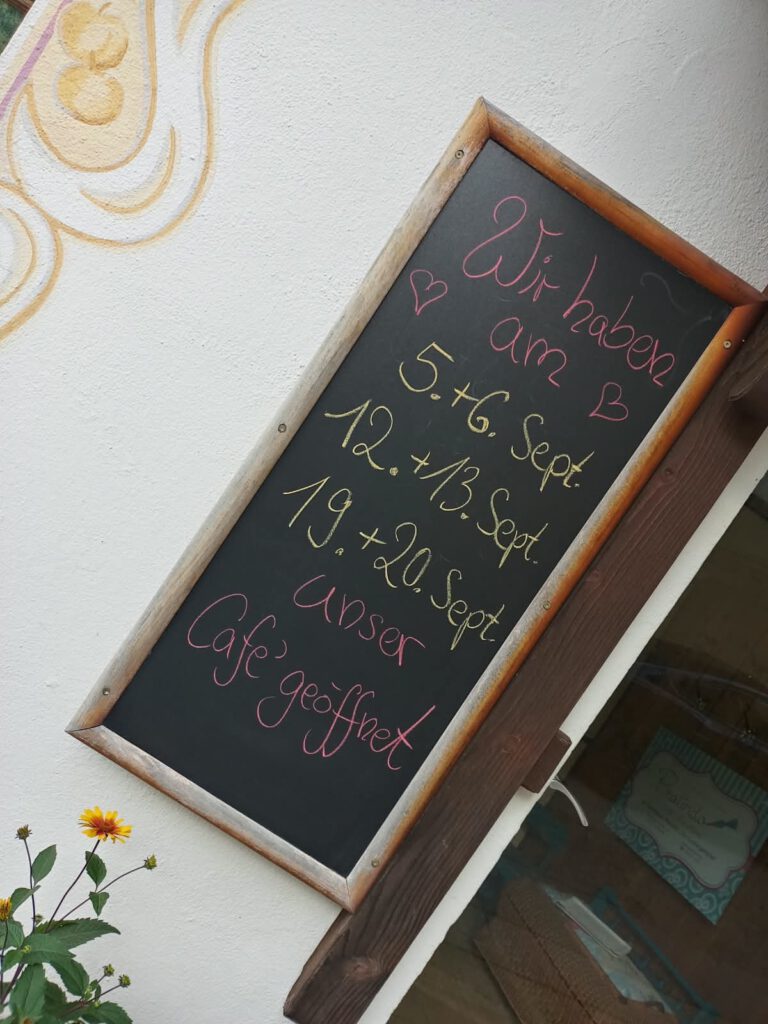 Wir haben
am
5.+6. Sept.
12.+13. Sept.
19.+20. Sept.
unser
Café geöffnet